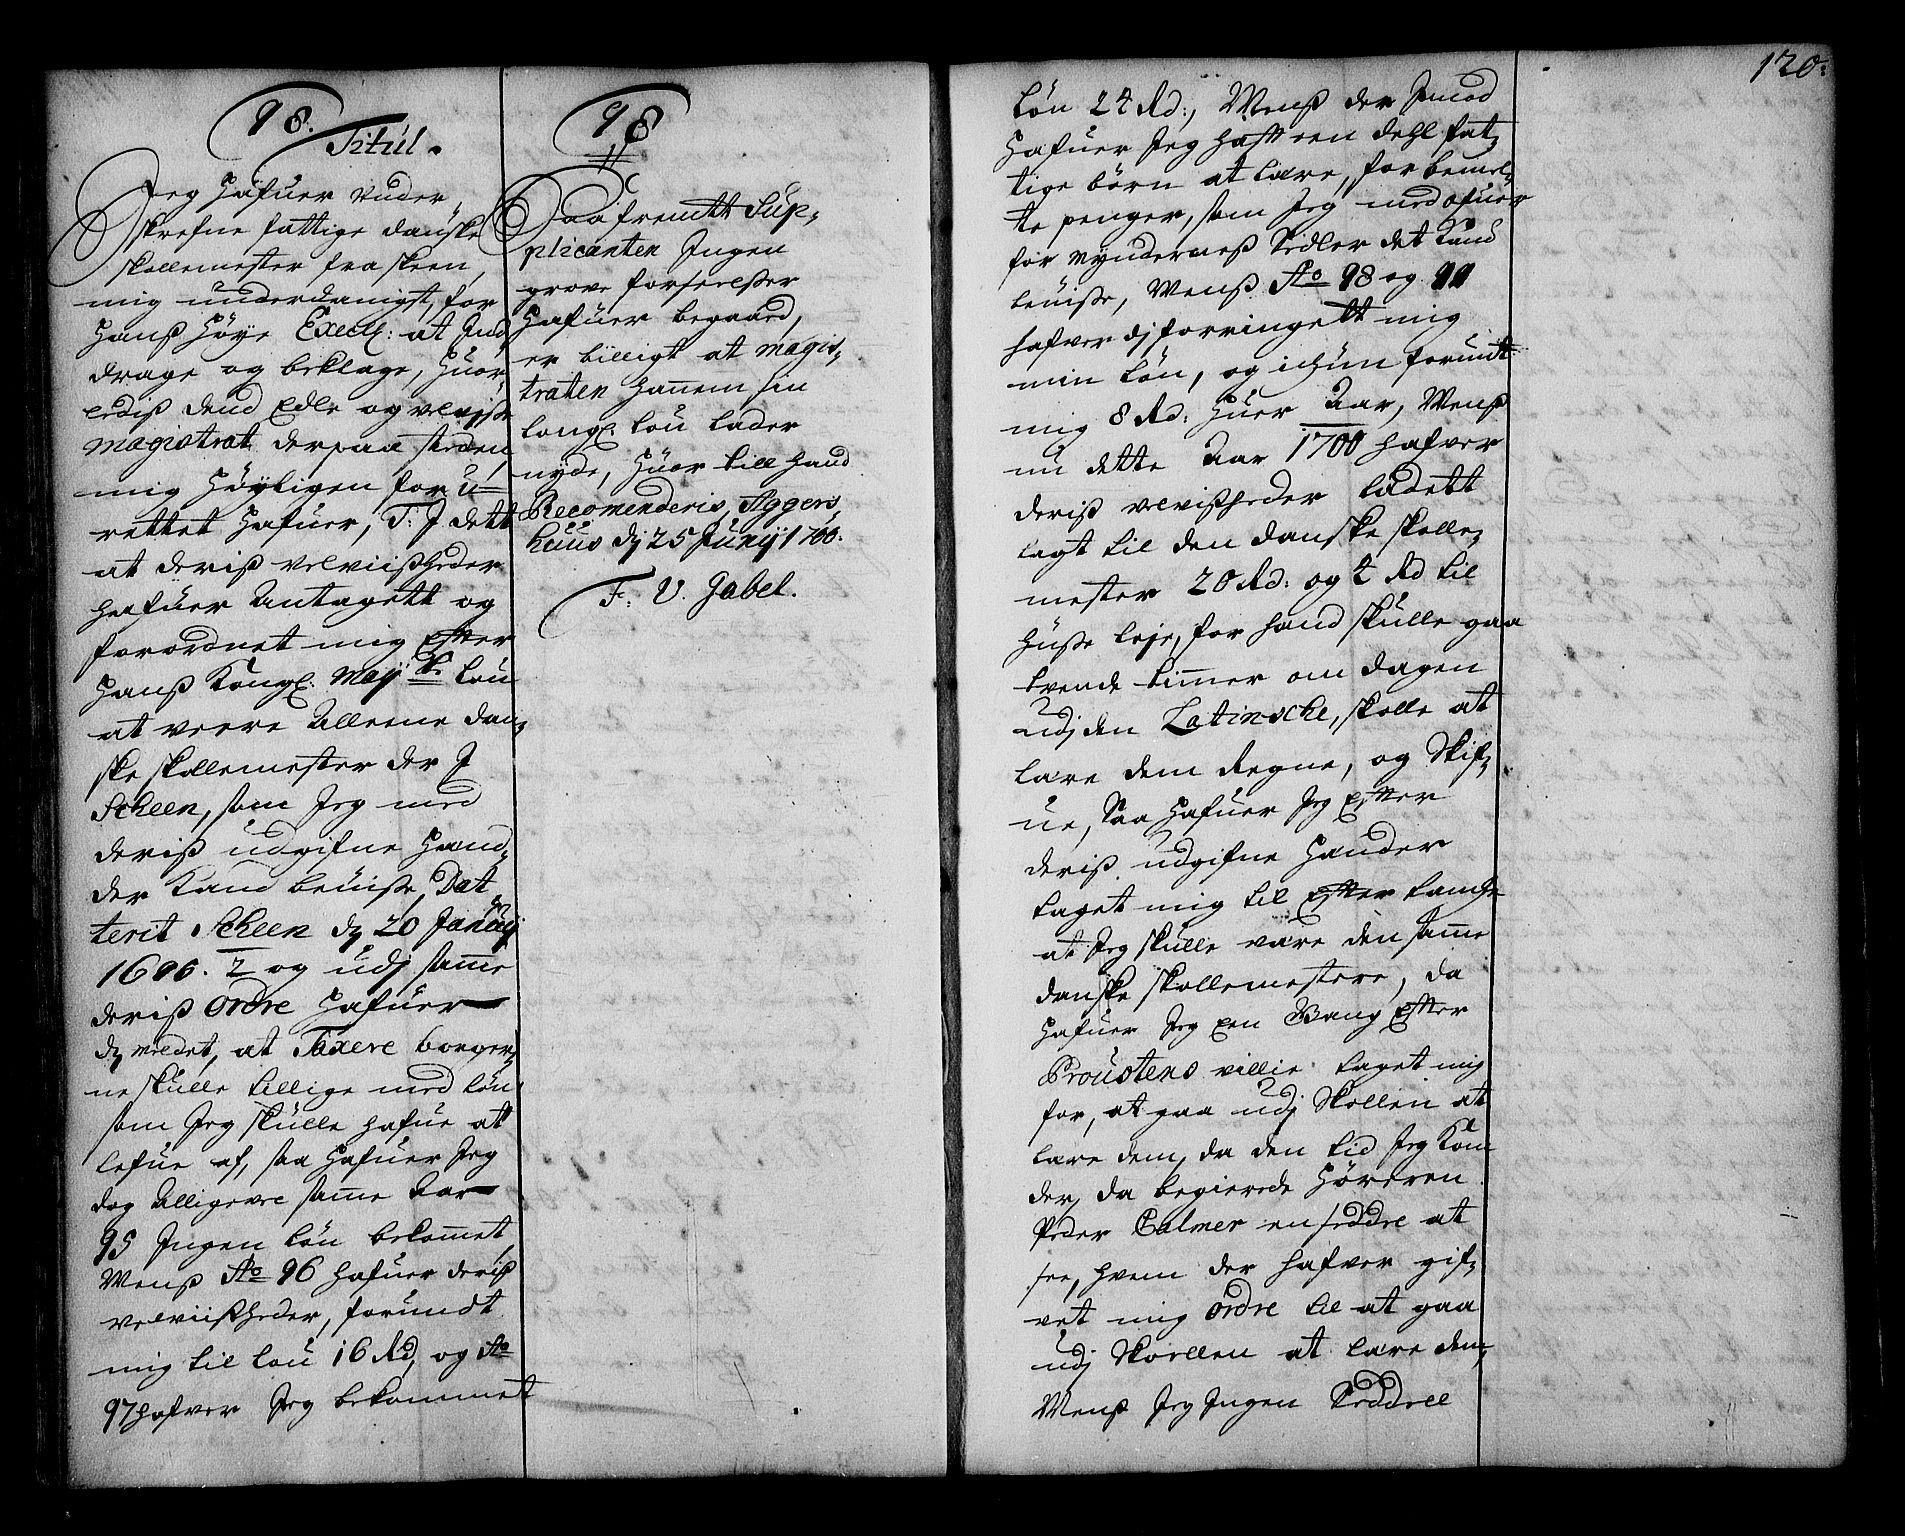 98.
Titul.
Jeg Hafuer under,
skrefne fattige danske
skollemester fra skeen,
mig underdanigst, for
Hanß Høye Excell: at And
drage og beklage, Huor,
ledis dend Edle og velvisse
magistrat derpaa steden,
mig Høyligen for u-
rettet Hafuer, T: J dett
at deriß velviißheder
Hafuer Antagett og
forordnet mig Effter
Hanß Kongl: Maytz. Lou
at veere Alleene dan,
ske skollemester der J
Scheen, som Jeg med
deriß udgifne Hand,
der Kand beviisse, Dat
terit Scheen dj 20 Januarij
1695. 2 og udj samme
deriß ordre Hafuer
dj meldet, at Taxere borger,
ne skulle tillige med løn
som Jeg skulle hafue at
lefue af, saa Hafuer Jeg
dog Alligevel samme Aar
95 Jngen løn bekommet,
Menß Ao 96 Hafuer deriß
velviißheder, forundt
mig til løn 16 Rd, og Ao
97 hafver Jeg bekommet
98
Saafremt Sup,
plicanten Jngen
grove forseelsser
Hafuer begaaed,
er billigt at magis,
traten Hannem sin
longl løn lader
nyde, Huor till Hand
Recomenderis, Aggers,
huus dj 25 Junij 1700.
F: V. Gabel.
120:
løn 24 Rd:, Menß der Jmod
Hafuer Jeg Hafft een dehl fat,
tige børn at lære, for bemel,
te penger, som Jeg med ofuer
for myndernes Sedler det Kand
beviisse, Menß Ao 98 og 99
hafver dj forringett mig
min løn, og ichun forundt
mig 8 Rd: Huer Aar, Menß
nu dette Aar 1700 hafver
deriß velvißheder ladett
lagt til den danske skolle,
mester 20 Rd: og 4 Rd til
Huße leje, for hand skulle gaa
tvende timer om dagen
udj den Latinsche, skolle at
lære dem Regne, og Skif,
ue, Saa Hafuer Jeg Effter
deriß udgifne Hander
taget mig til Effter
at Jeg skulle være den samme
danske skollemestere, da
Hafuer Jeg een Gang Effter
Proustens villie taget mig
for, at gaa udj Skollen at
lære dem, da den tid Jeg Kom
der, da begierede Høreren
Peder Calmer en seddel at
see, hvem der hafver gif,
vet mig ordre til at gaa
udj Skoellen at lære dem,
Menß Jeg Jngen Seddeel